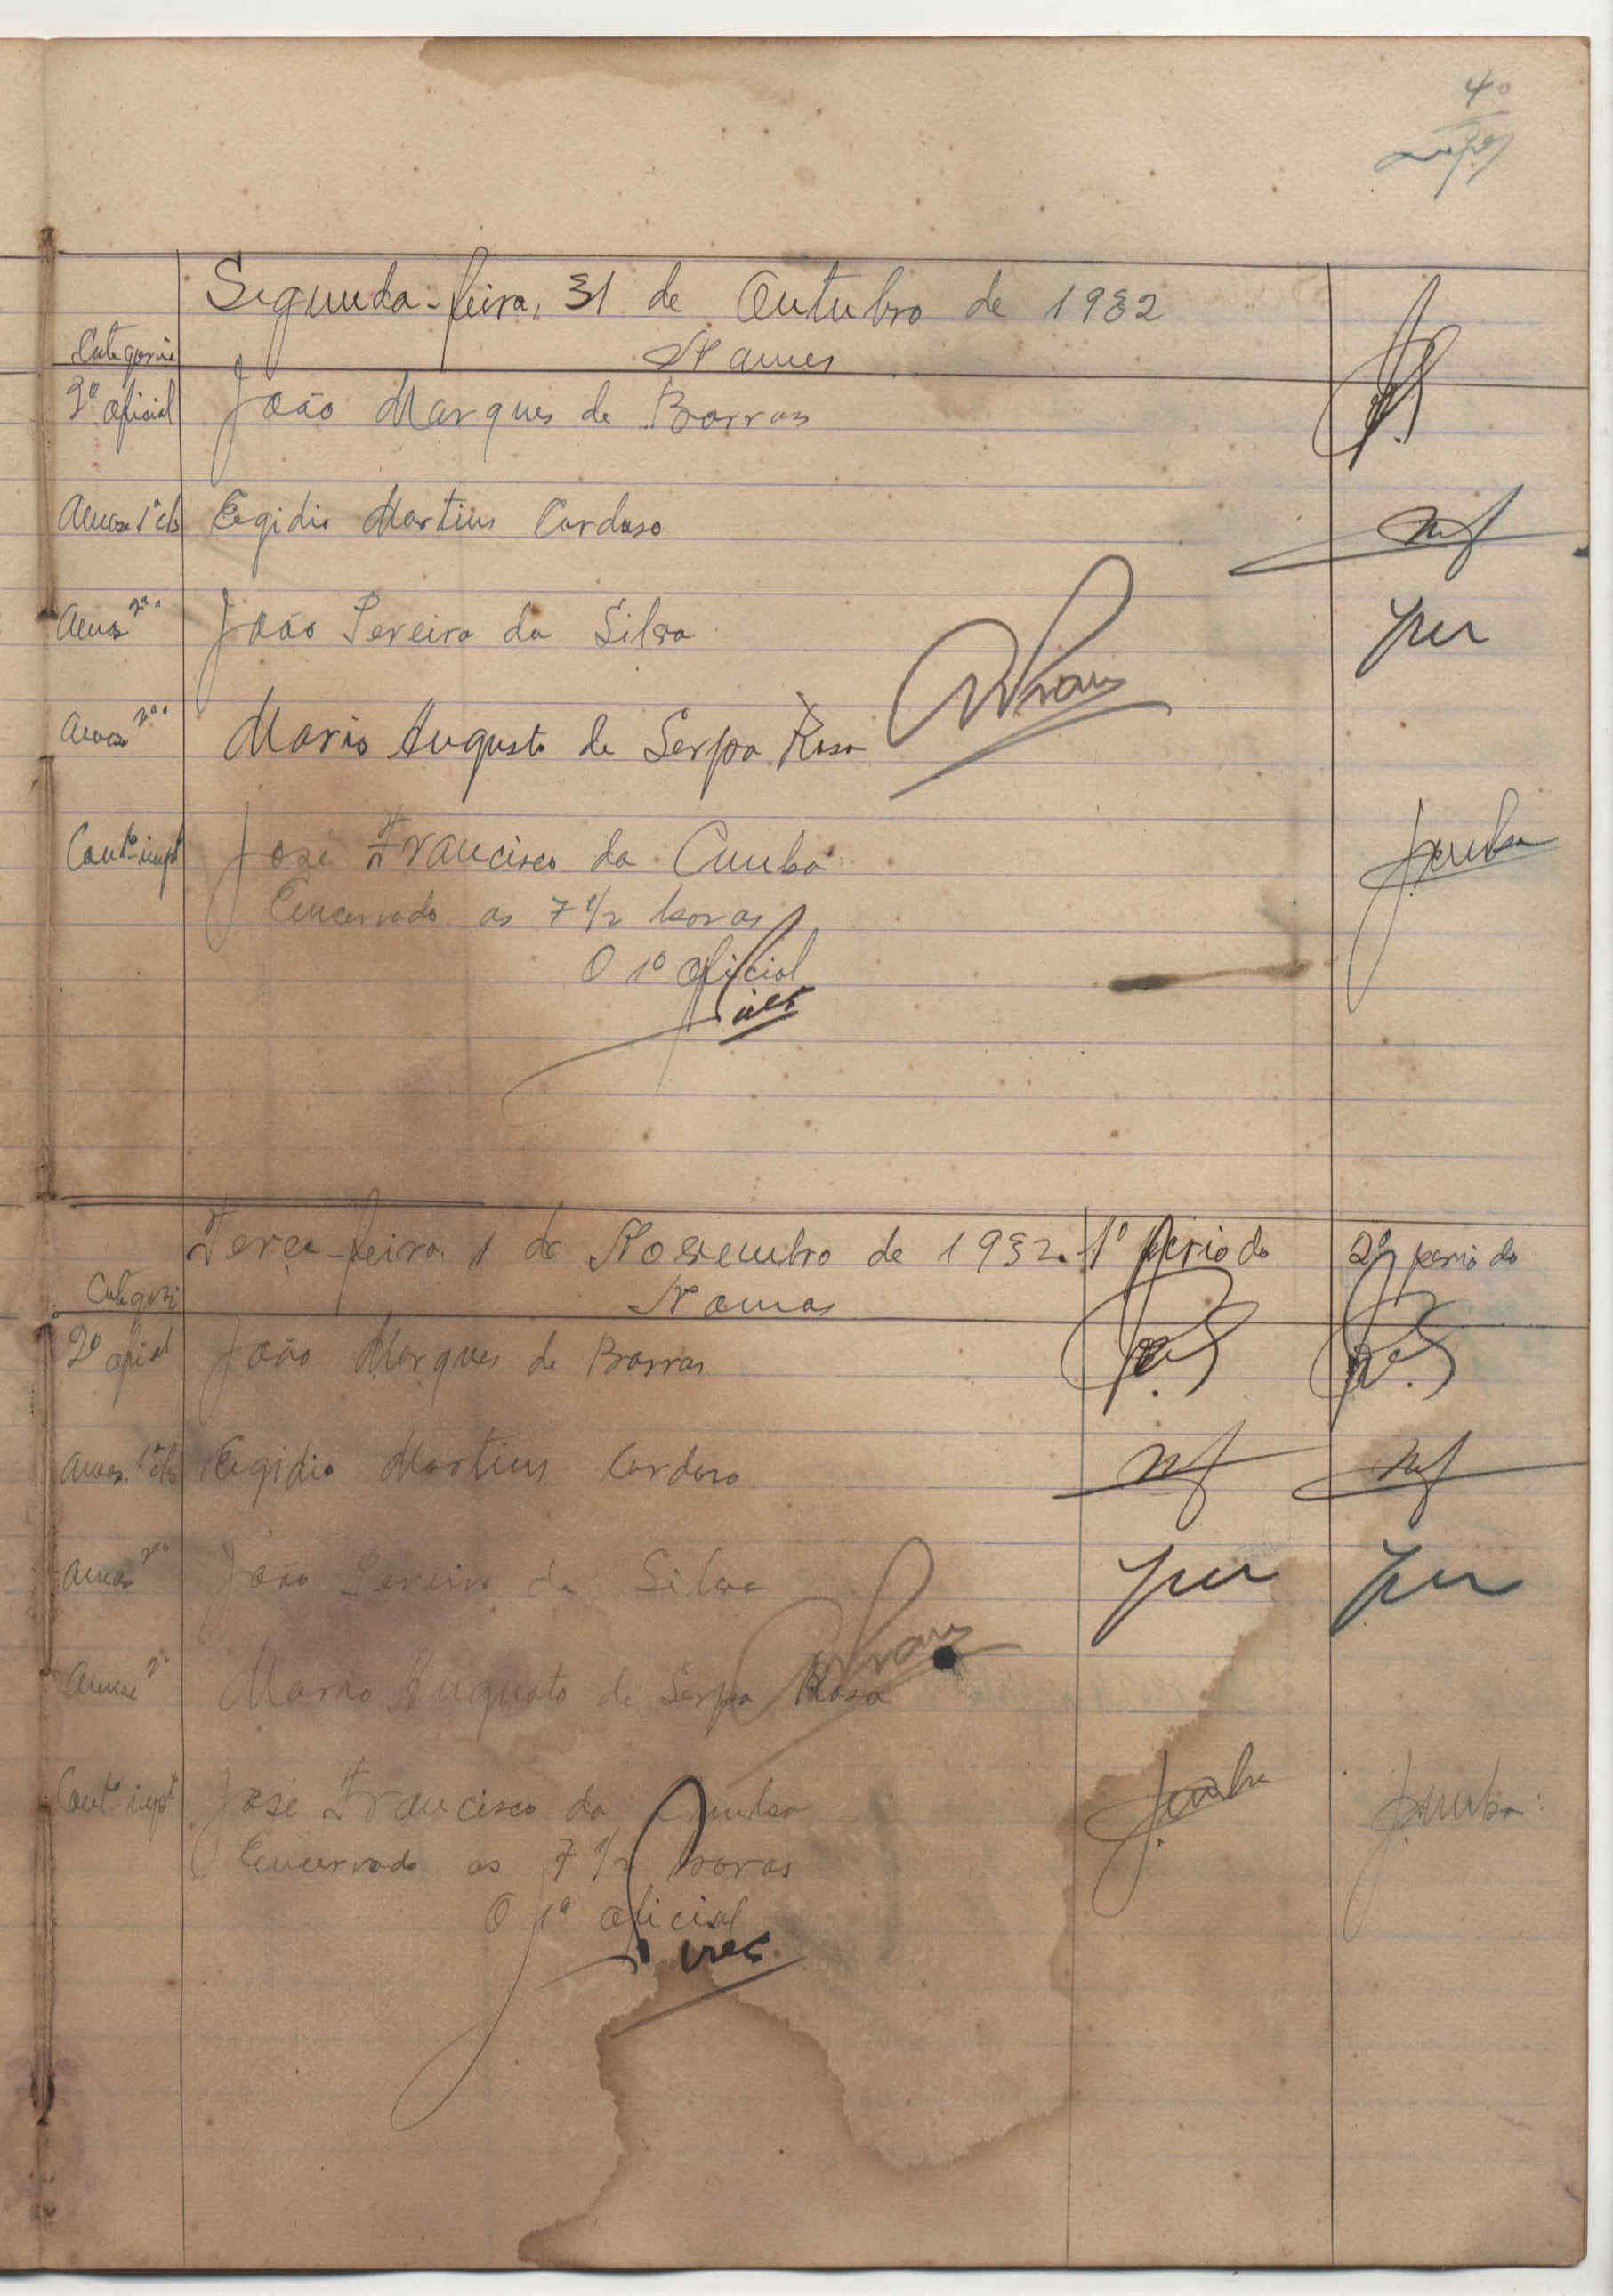 40
Segunda-feira, 31 de Outubro de 1932
Categoria Nomes
2º oficial João Marques de Barros
Amas 1ª cls Egidio Martins Cardoso
Amas 2ª " João Pereira da Silva
Amas 2ª " Mario Augusto de Serpa Rosa
Contº impt José Francisco da Cunha
Encerrado as 7 1/2 horas
O 1º oficial
Terça-feira 1 de Novembro de 1932. 1º periodo 2º periodo
Categori Nomes
2º oficial João Marques de Barros
Amas. 1ª cls Egidio Martins Cardoso
Amas 2ª " João Pereira da Silva
Amas 2ª Mario Augusto de Serpa Rosa
Contº impt José Francisco da Cunha
Encerrado as 7 1/2 horas
O 1º oficial